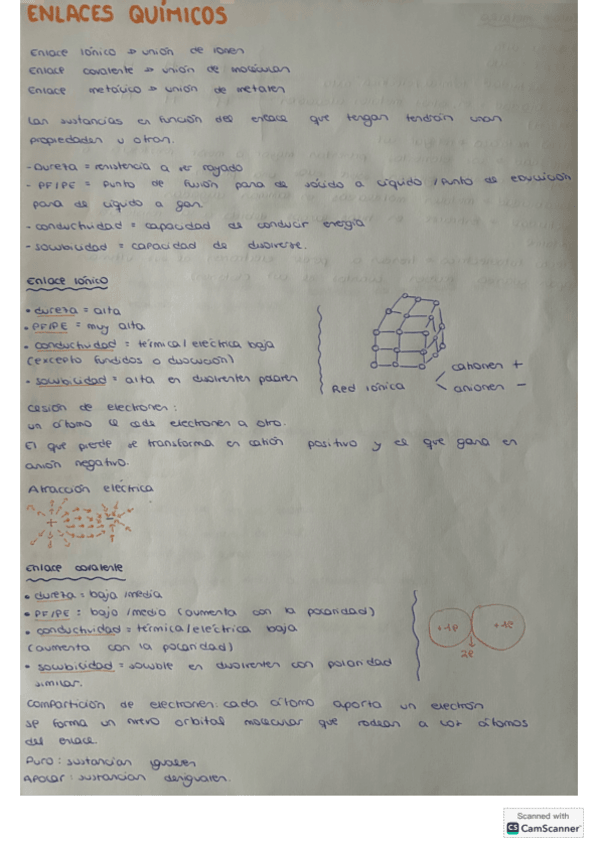 ENLACES QUÍMICOS
Enlace iónico → unión de iones
Enlace covalente → unión de moléculas
Enlace metálico → unión de metales
Las sustancias en función del enlace que tengan tendrán unas
propiedades u otras.
- Dureza = resistencia a ser rayado
- PF/PE = Punto de fusión pasa de sólido a líquido / Punto de ebullición
pasa de líquido a gas.
- Conductividad = capacidad de conducir energía
- Solubilidad = capacidad de disolverse.
Enlace iónico
• dureza = alta
• PF/PE = muy alta
• conductividad = térmica/eléctrica baja
(excepto fundidos o disolución)
• solubilidad = alta en disolventes polares
Red iónica
cationes +
aniones −
Cesión de electrones:
un átomo le cede electrones a otro.
El que pierde se transforma en catión positivo y el que gana en
anión negativo.
Atracción eléctrica
+ −
Enlace covalente
• dureza = baja/media
• PF/PE = bajo/medio (aumenta con la polaridad)
• conductividad = térmica/eléctrica baja
(aumenta con la polaridad)
• solubilidad = soluble en disolventes con polaridad
similar.
+1e
+1e
2e
Compartición de electrones: cada átomo aporta un electrón
se forma un nuevo orbital molecular que rodean a los átomos
del enlace.
Puro: sustancias iguales
Apolar: sustancias desiguales.
Scanned with
CS CamScanner